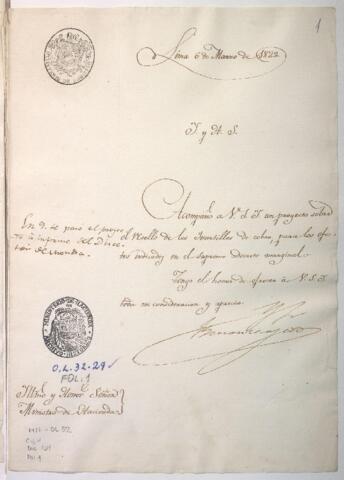 1
Lima 6 de Marzo de 1822
Y. y H. S.
Acompaño a V. S. Y. un proyecto sobre
el Sello de los de cobre, para los efec
tos indicados en el supremo decreto marginal.
Tengo el honor de ofrecer a V. S. Y.
toda mi consideracion y aprecio.
En 9. se paso el proyec
to a informe del Direc
tor de moneda
MINISTERIO DE HACIENDA
O.L. 32-29
FOL: 1
Illmo. y Honor. Señor
Ministro de Hacienda